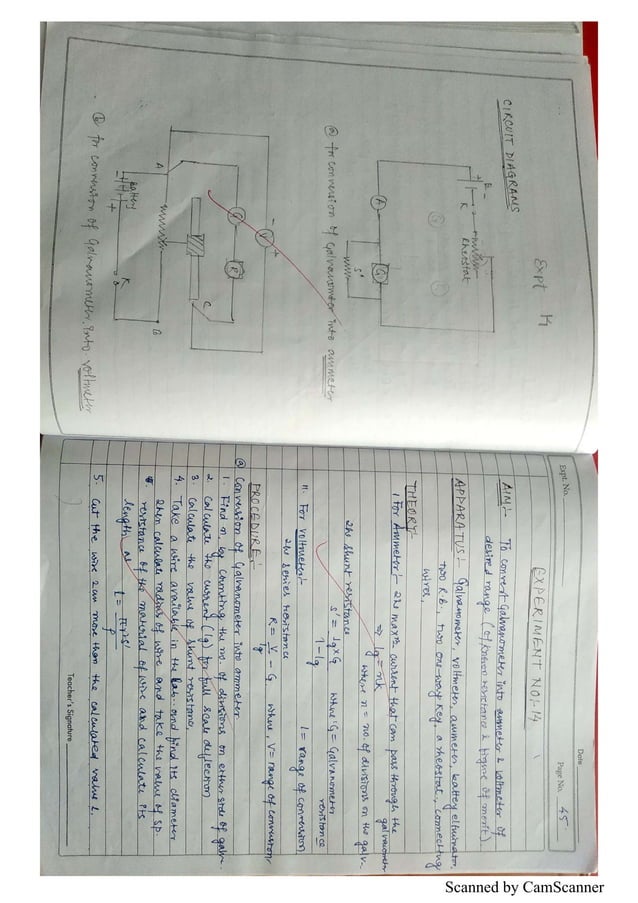 Expt 14
CIRCUIT DIAGRAMS
B
K
Rheostat
A
G
S'
(a) for conversion of Galvanometer into ammeter
V
G
R
C
A
B
Battery
K
(b) for conversion of Galvanometer into voltmeter
Date
Expt. No.
Page No. 45
EXPERIMENT NO:-14
AIM:- To convert Galvanometer into ammeter & voltmeter of
desired range (of known resistance & figure of merit)
APPARATUS:- Galvanometer, voltmeter, ammeter, battery eliminator,
two R.B. two one-way key, a rheostat, connecting
wires.
THEORY-
1 For Ammeter:- The max^m current that can pass through the
galvanometer
⇒ Ig = nk
where n = no. of divisions on the galv.
The shunt resistance
S' = Ig x G / I - Ig where G = Galvanometer
resistance
I = range of conversion
11. For voltmeter:-
The series resistance
R = V/Ig - G where V = range of conversion
PROCEDURE:
(a) Conversion of Galvanometer into ammeter
1. Find n, by counting the no. of divisions on either side of galv.
2. Calculate the current (Ig) for full scale deflection
3. Calculate the value of shunt resistance.
4. Take a wire available in the lab. and find its diameter
then calculate radius of wire and take the value of sp.
resistance of the material of wire and calculate its
length as
l = πr²S' / ρ
5. Cut the wire 2cm more than the calculated value l.
Teacher's Signature
Scanned by CamScanner